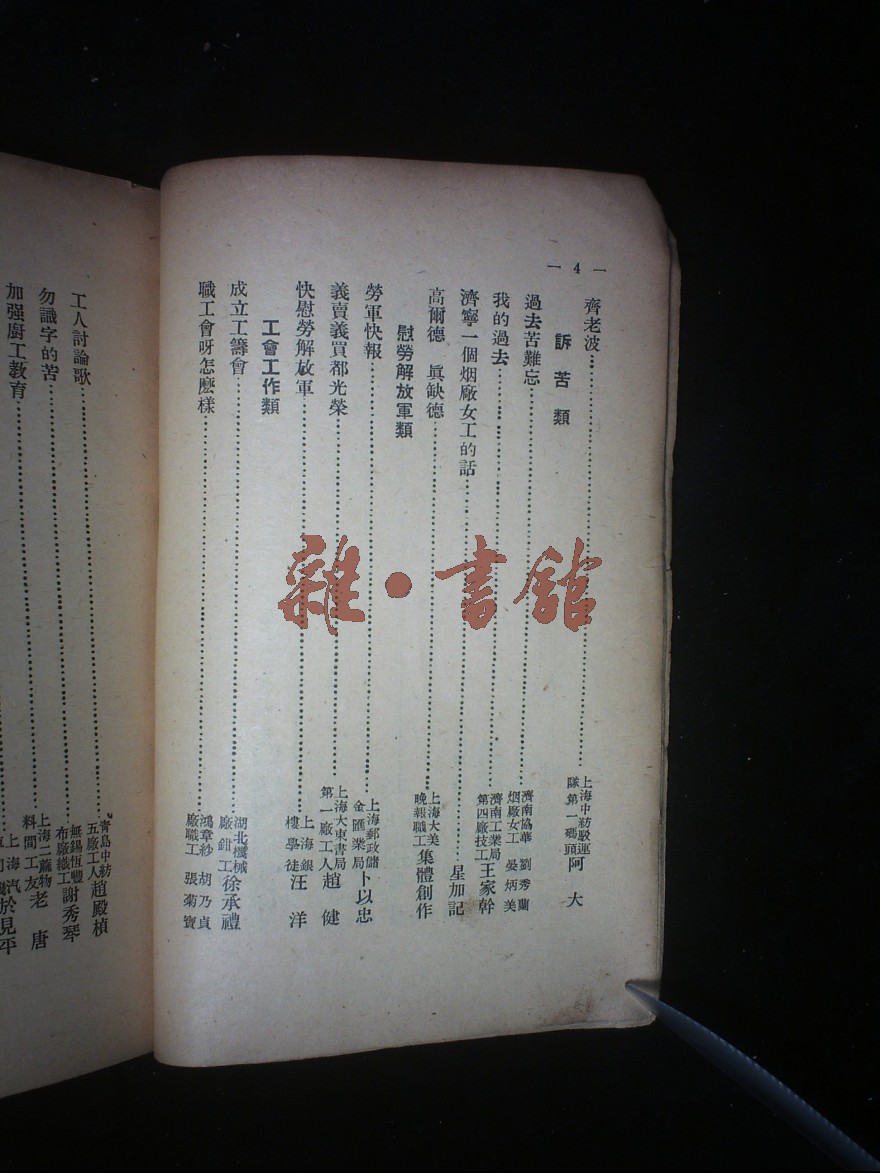 一 4 一
齊老波……上海中紡駁運隊第一碼頭 阿大
訴苦類
過去苦難忘……濟南協華烟廠女工 劉秀蘭 晏炳美
我的過去……濟南工業局第四廠技工 王家幹
濟寧一個烟廠女工的話……星加記
高爾德 眞缺德……上海大美晚報職工 集體創作
慰勞解放軍類
勞軍快報……上海郵政儲金匯業局 卜以忠
義賣義買都光榮……上海大東書局第一廠工人 趙健
快慰勞解放軍……上海銀樓學徒 汪洋
工會工作類
成立工籌會……湖北機械廠鉗工 徐承禮
職工會呀怎麽樣……鴻章紗廠職工 胡乃貞 張菊寶
工人討論歌……青島中紡五廠工人 趙殿楨
勿識字的苦……無錫恆豐布廠織工 謝秀琴
加强厨工教育……上海二蔬物料間工友 老唐
上海汽 於見平
雜·書館